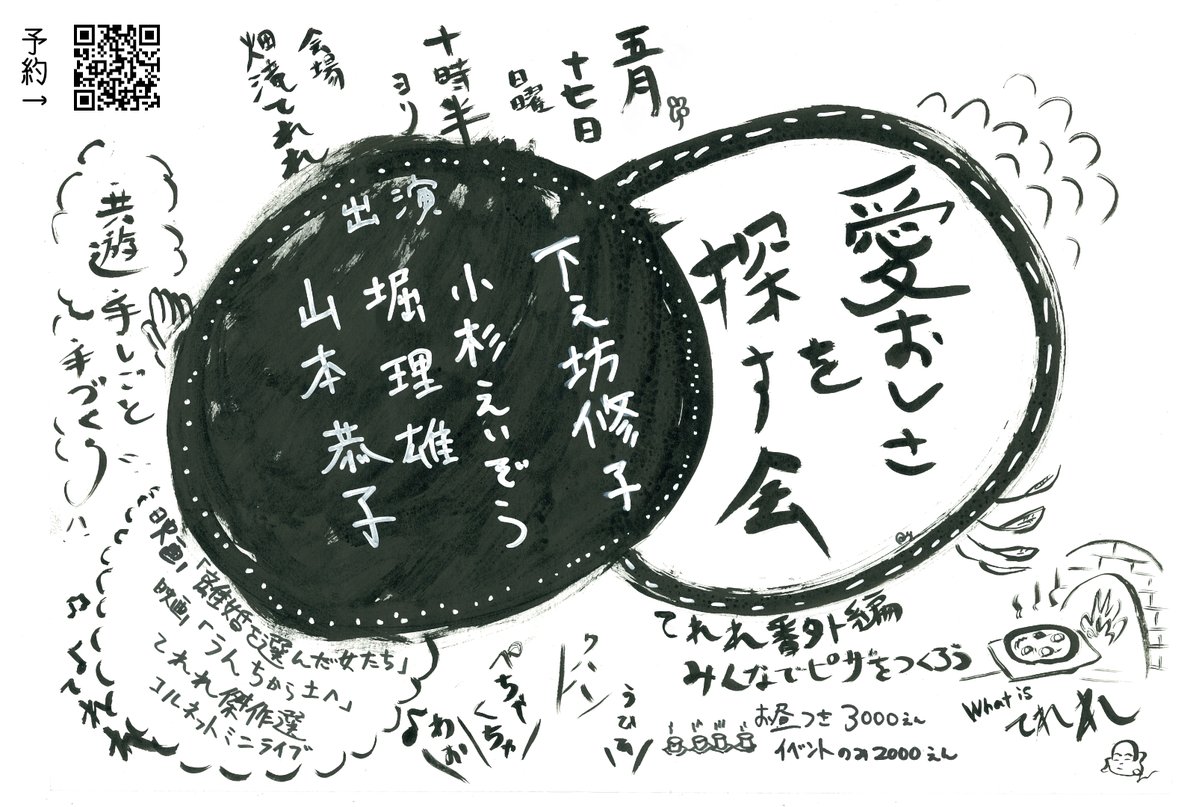 愛おしさ
を
探す会
五月
十七日
日曜
十時半
ヨリ
会場
畑滝てれれ
予約→
出演
下之坊修子
小杉えいぞう
堀理雄
山本恭子
共遊
手しごと
と
手づくり
映画「離婚を選んだ女たち」
映画「うんちから土へ」
てれれ傑作選
コルネットミニライブ
てれれ番外編
みんなでピザをつくろう
お昼つき3000えん
イベントのみ2000えん
What is
てれれ
ぺちゃ
くちゃ
わお